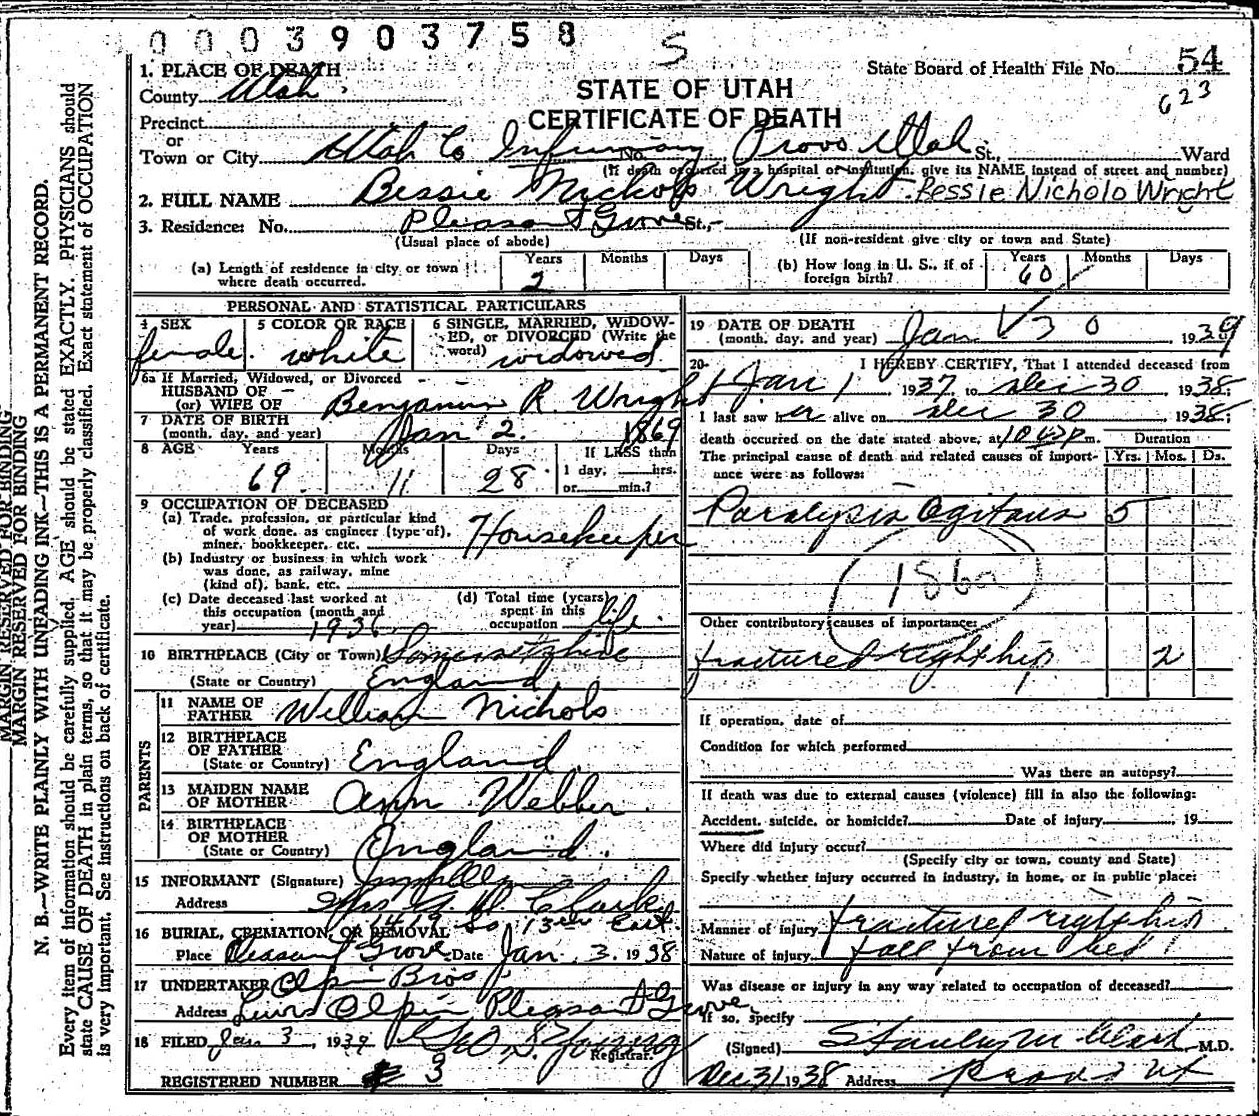 0003903758 S
1. PLACE OF DEATH
State Board of Health File No. 54
County Utah.
STATE OF UTAH
623
Precinct
CERTIFICATE OF DEATH
or
Town or City Utah Co Infirmary No. Provo Utah St., Ward
(If death occurred in a hospital or institution, give its NAME instead of street and number)
2. FULL NAME Bessie Nichols Wright. Bessie Nicholo Wright
3. Residence: No. Pleasant Grove St.,
(Usual place of abode) (If non-resident give city or town and State)
(a) Length of residence in city or town where death occurred. Years 2 Months Days
(b) How long in U. S., if of foreign birth? Years 60 Months Days
PERSONAL AND STATISTICAL PARTICULARS
4 SEX female. 5 COLOR OR RACE white 6 SINGLE, MARRIED, WIDOWED, or DIVORCED (Write the word) widowed
6a If Married, Widowed, or Divorced
HUSBAND OF
(or) WIFE OF Benjamin R. Wright
7 DATE OF BIRTH
(month, day, and year) Jan 2. 1869
8 AGE Years 69 Months 11 Days 28 If LESS than 1 day, hrs. or min.?
9 OCCUPATION OF DECEASED
(a) Trade, profession, or particular kind
of work done, as engineer (type of),
miner, bookkeeper, etc. Housekeeper
(b) Industry or business in which work
was done, as railway, mine
(kind of), bank, etc.
(c) Date deceased last worked at
this occupation (month and
year) 1936
(d) Total time (years)
spent in this
occupation life.
10 BIRTHPLACE (City or Town) Somersetshire
(State or Country) England
PARENTS
11 NAME OF
FATHER William Nichols
12 BIRTHPLACE
OF FATHER
(State or Country) England.
13 MAIDEN NAME
OF MOTHER Ann Webber.
14 BIRTHPLACE
OF MOTHER
(State or Country) England.
15 INFORMANT (Signature)
Address Mrs Clark
1419 So 13th East.
16 BURIAL, CREMATION, OR REMOVAL
Place Pleasant Grove Date Jan. 3. 1938
17 UNDERTAKER Olpin Bros
Address Lewis Olpin Pleasant Grove
18 FILED Jan 3, 1939 Geo S. Young
Registrar.
REGISTERED NUMBER 3
19 DATE OF DEATH
(month, day, and year) Jan 30 1939
20 I HEREBY CERTIFY, That I attended deceased from
Jan 1 1937, to Dec 30 1938.
I last saw her alive on Dec 30 1938.
death occurred on the date stated above, at m. Duration
The principal cause of death and related causes of importance were as follows: Yrs. Mos. Ds.
Paralysis agitans 5
Other contributory causes of importance:
fractured right hip 2
If operation, date of
Condition for which performed
Was there an autopsy?
If death was due to external causes (violence) fill in also the following:
Accident, suicide, or homicide? Date of injury 19
Where did injury occur?
(Specify city or town, county and State)
Specify whether injury occurred in industry, in home, or in public place:
Manner of injury fractured right hip
Nature of injury fall from bed
Was disease or injury in any way related to occupation of deceased?
If so, specify
(Signed) Stanley M Clark M.D.
Dec 31 1938 Address Provo Ut
MARGIN RESERVED FOR BINDING
MARGIN RESERVED FOR BINDING
N. B.—WRITE PLAINLY WITH UNFADING INK—THIS IS A PERMANENT RECORD.
Every item of information should be carefully supplied. AGE should be stated EXACTLY. PHYSICIANS should
state CAUSE OF DEATH in plain terms, so that it may be properly classified. Exact statement of OCCUPATION
is very important. See instructions on back of certificate.